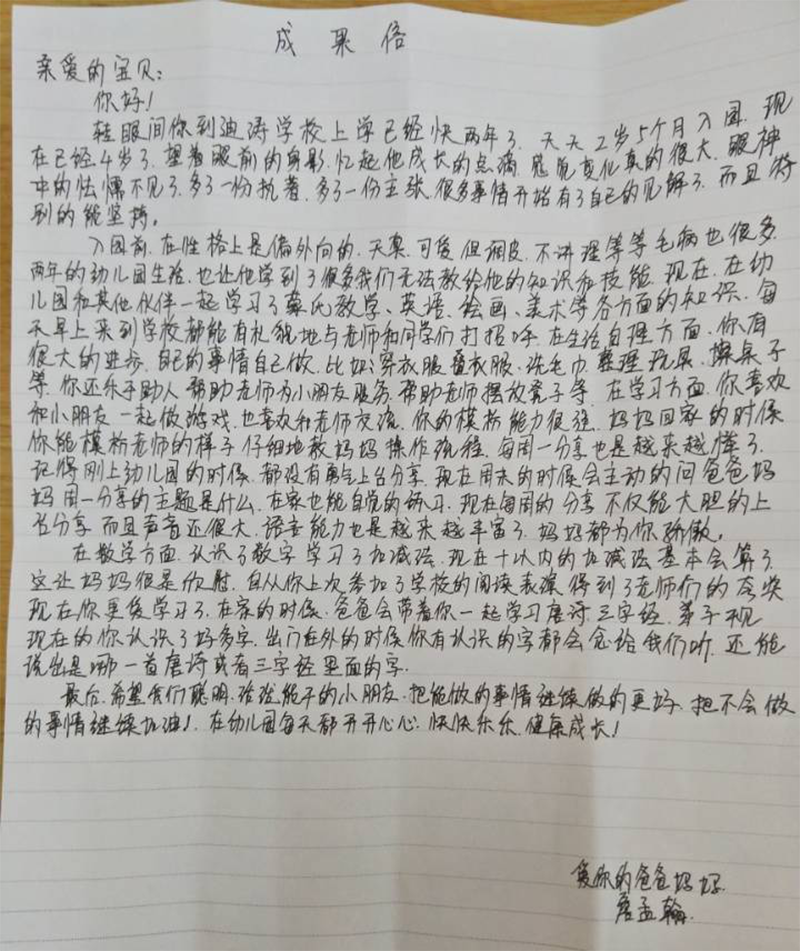 成果信
亲爱的宝贝：
你好！
转眼间你到迪涛学校上学已经快两年了，天天2岁5个月入园，现
在已经4岁了，望着眼前的身影，忆起他成长的点滴，感觉变化真的很大，眼神
中的怯懦不见了，多了一份执着，多了一份主张，很多事情开始有了自己的见解了，而且特
别的能坚持。
入园前，在性格上是偏外向的，天真，可爱但调皮，不讲理等等毛病也很多，
两年的幼儿园生活，也让他学到了很多我们无法教给他的知识和技能，现在，在幼
儿园和其他伙伴一起学习了蒙氏教学、英语、绘画、美术等各方面的知识，每
天早上来到学校都能有礼貌地与老师和同学们打招呼，在生活自理方面，你有
很大的进步，自己的事情自己做，比如：穿衣服叠衣服、洗毛巾，整理玩具，擦桌子
等，你还乐于助人，帮助老师为小朋友服务，帮助老师摆放凳子等，在学习方面，你喜欢
和小朋友一起做游戏，也喜欢和老师交流，你的模拟能力很强，妈妈回家的时候
你能模拟老师的样子仔细地教妈妈操作流程，每周一分享也是越来越棒了，
记得刚上幼儿园的时候，都没有勇气上台分享，现在周末的时候会主动的问爸爸妈
妈周一分享的主题是什么，在家也能自觉的练习，现在每周的分享不仅能大胆的上
台分享，而且声音还很大，语言能力也是越来越丰富了，妈妈都为你骄傲。
在数学方面，认识了数字，学习了加减法，现在十以内的加减法基本会算了，
这让妈妈很是欣慰，自从你上次参加了学校的阅读表演，得到了老师们的夸奖
现在你更爱学习了，在家的时候，爸爸会带着你一起学习唐诗，三字经，弟子规
现在的你认识了好多字，出门在外的时候你有认识的字都会念给我们听，还能
说出是哪一首唐诗或者三字经里面的字，
最后，希望我们聪明、活泼能干的小朋友，把能做的事情继续做的更好，把不会做
的事情继续加油！在幼儿园每天都开开心心，快快乐乐，健康成长！
爱你的爸爸妈妈
唐孟翰